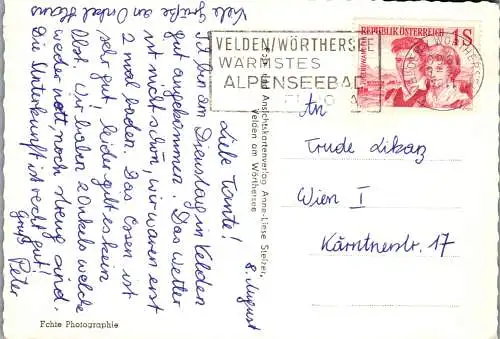 8. August
Liebe Tante!
Ich bin am Dienstag in Velden
gut angekommen. Das Wetter
ist nicht schön, wir waren erst
2 mal baden. Das Essen ist
sehr gut leider gibt es kein
Obst. Wir haben 2 Onkels welche
weder nett, noch streng sind.
Die Unterkunft ist recht gut!
Gruß Peter
Viele Grüße an Onkel Hans
Echte Photographie
Foto und Ansichtskartenverlag Anne-Liese Steirer,
Velden am Wörthersee
VELDEN/WÖRTHERSEE
WARMSTES
ALPENSEEBAD
REPUBLIK ÖSTERREICH 1S
An
Trude Likan
Wien I
Kärntnerstr. 17